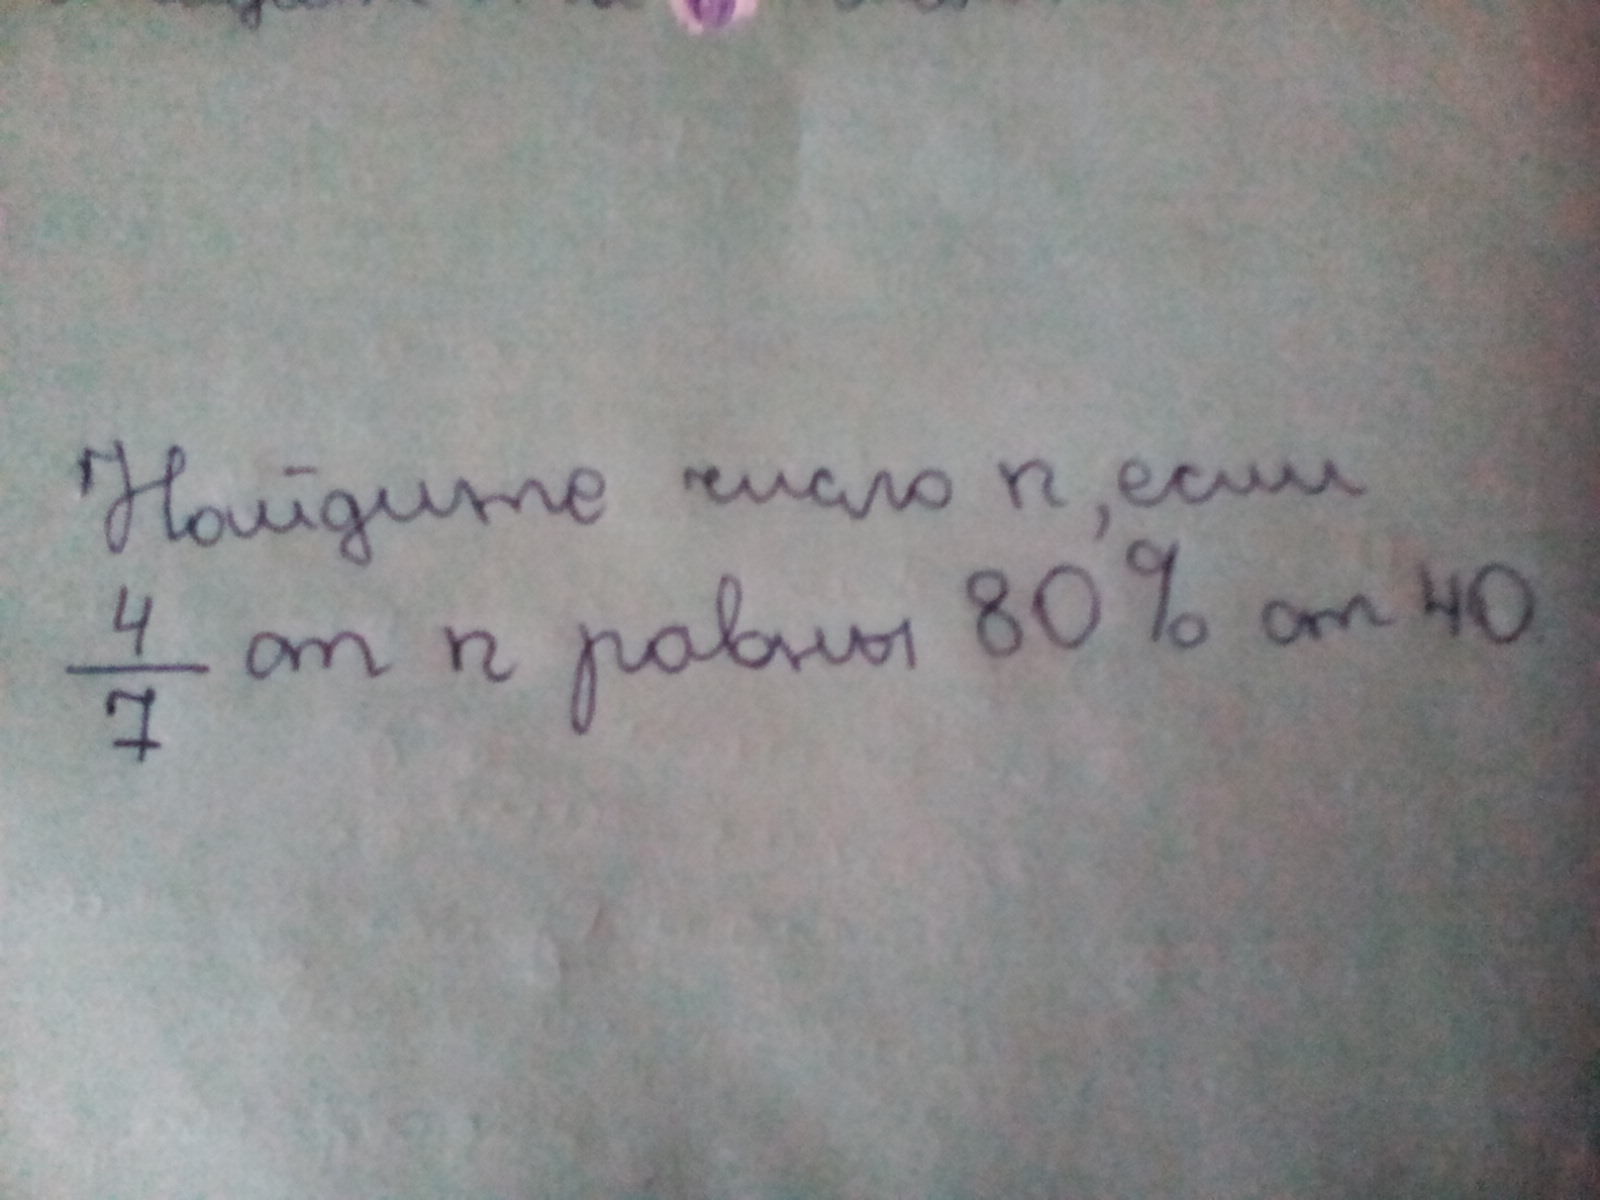 Найдите число n, если
4/7 от n равны 80% от 40